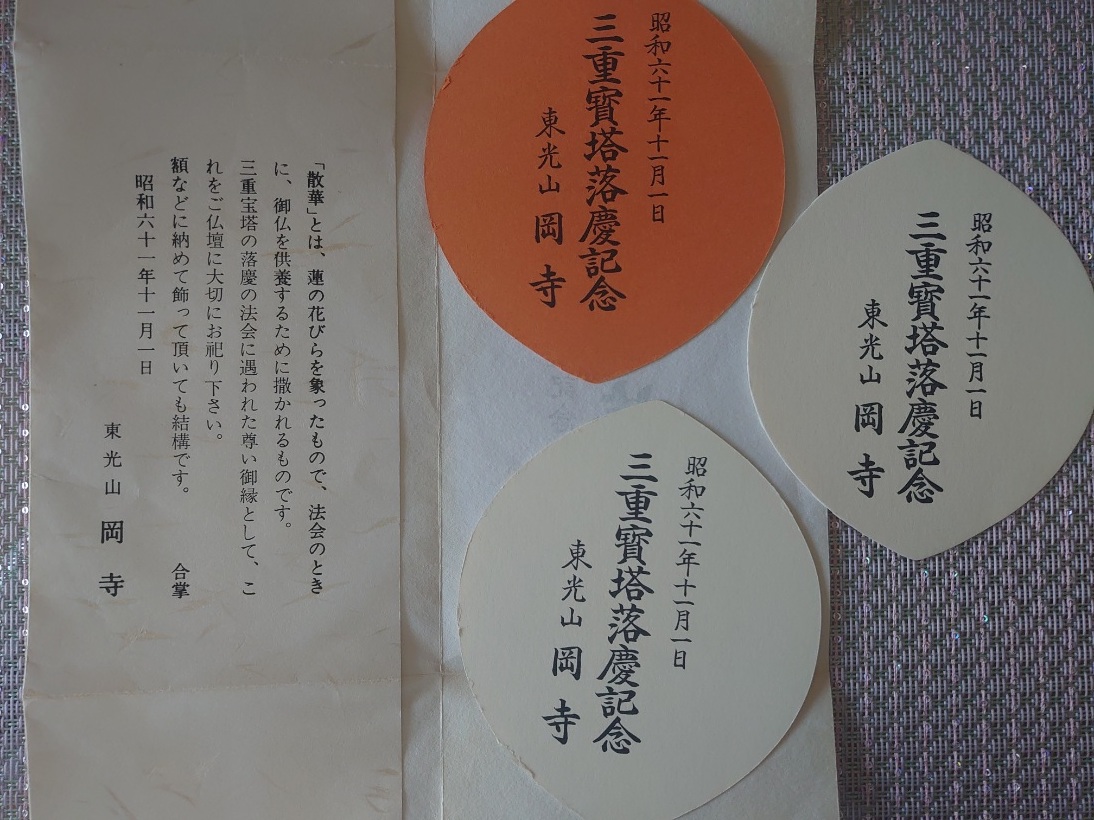 昭和六十一年十一月一日
三重寳塔落慶記念
東光山 岡寺
昭和六十一年十一月一日
三重寳塔落慶記念
東光山 岡寺
昭和六十一年十一月一日
三重寳塔落慶記念
東光山 岡寺
「散華」とは、蓮の花びらを象ったもので、法会のとき
に、御仏を供養するために撒かれるものです。
三重宝塔の落慶の法会に遇われた尊い御縁として、こ
れをご仏壇に大切にお祀り下さい。
額などに納めて飾って頂いても結構です。 合掌
昭和六十一年十一月一日
東光山 岡寺